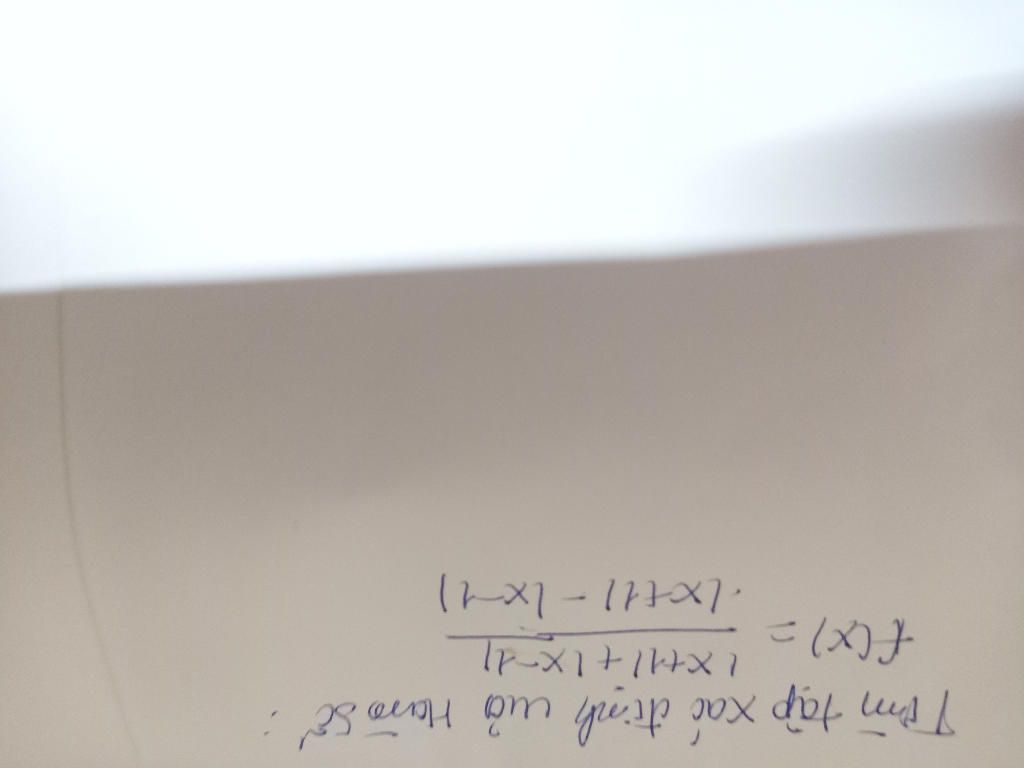 Tìm tập xác định của Hàm số :
f(x) = |x+1| + |x-1| / |x+1| - |x-1|